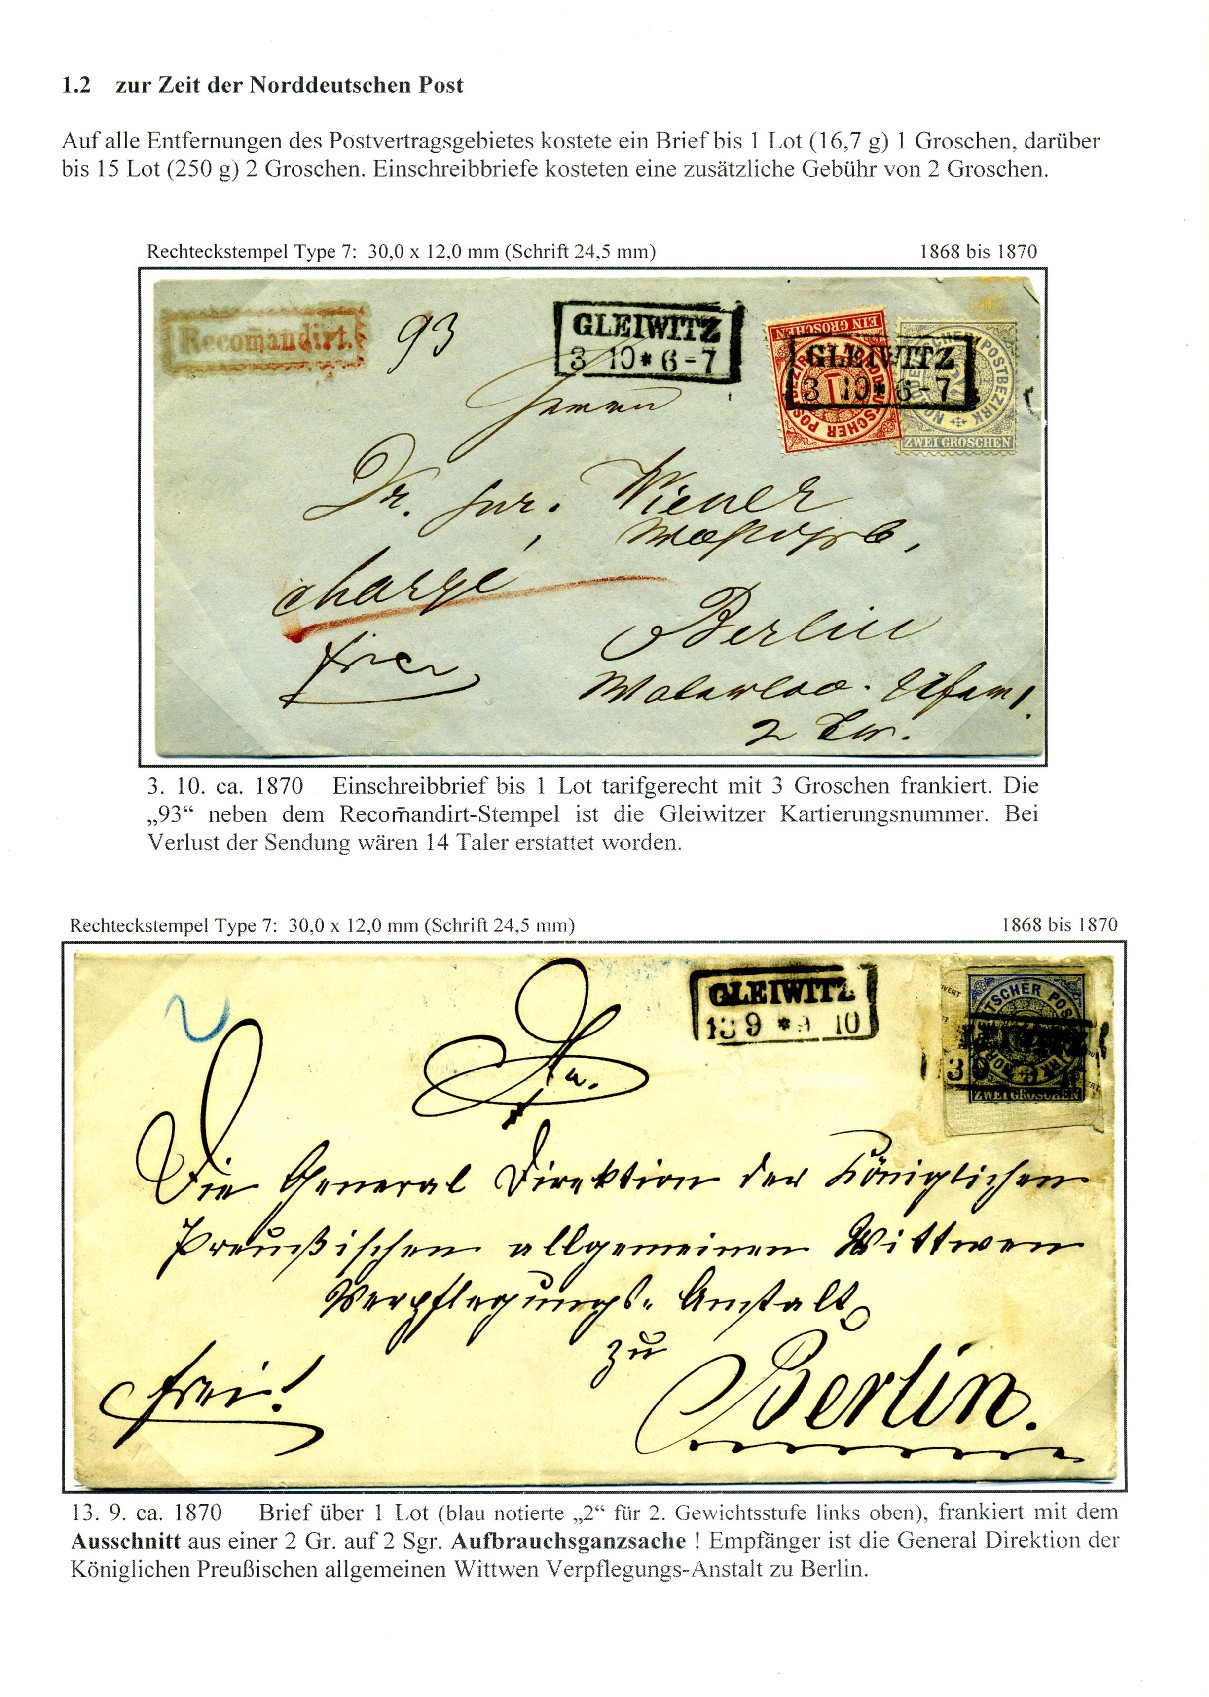 1.2 zur Zeit der Norddeutschen Post
Auf alle Entfernungen des Postvertragsgebietes kostete ein Brief bis 1 Lot (16,7 g) 1 Groschen, darüber
bis 15 Lot (250 g) 2 Groschen. Einschreibbriefe kosteten eine zusätzliche Gebühr von 2 Groschen.
Rechteckstempel Type 7: 30,0 x 12,0 mm (Schrift 24,5 mm) 1868 bis 1870
Recom̄andirt.
93
GLEIWITZ
3 10 * 6-7
EIN GROSCHEN
NORDDEUTSCHER POSTBEZIRK
1
GLEIWITZ
3 10 * 6-7
NORDDEUTSCHER POSTBEZIRK
2
ZWEI GROSCHEN
Herrn
Dr. jur. Wiener
chargé
Berlin
frei
Waterloo-Ufer
3. 10. ca. 1870 Einschreibbrief bis 1 Lot tarifgerecht mit 3 Groschen frankiert. Die
„93“ neben dem Recom̄andirt-Stempel ist die Gleiwitzer Kartierungsnummer. Bei
Verlust der Sendung wären 14 Taler erstattet worden.
Rechteckstempel Type 7: 30,0 x 12,0 mm (Schrift 24,5 mm) 1868 bis 1870
2
GLEIWITZ
13 9 * 9 10
ZWEI GROSCHEN
An.
Die General Direktion der Königlichen
Preußischen allgemeinen Wittwen
Verpflegungs-Anstalt
zu
frei!
Berlin.
13. 9. ca. 1870 Brief über 1 Lot (blau notierte „2“ für 2. Gewichtsstufe links oben), frankiert mit dem
Ausschnitt aus einer 2 Gr. auf 2 Sgr. Aufbrauchsganzsache ! Empfänger ist die General Direktion der
Königlichen Preußischen allgemeinen Wittwen Verpflegungs-Anstalt zu Berlin.